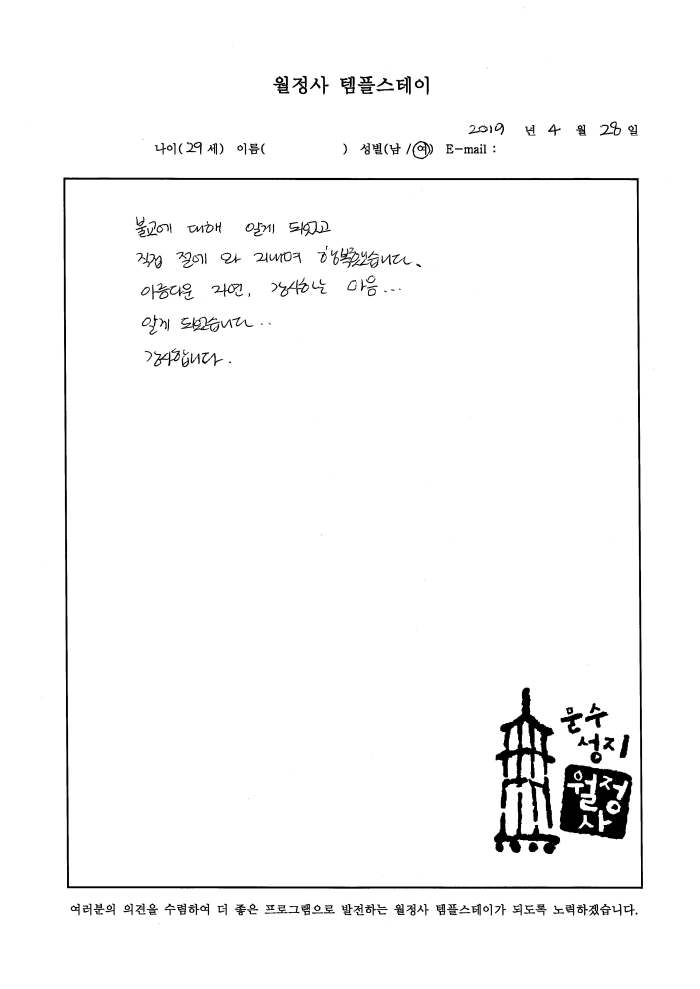 월정사 템플스테이
2019 년 4 월 28 일
나이( 29 세) 이름( ) 성별(남 / 여) E-mail :
불교에 대해 알게 되었고
직접 절에 와 지내며 행복했습니다.
아름다운 자연, 감사하는 마음...
알게 되었습니다..
감사합니다.
문수
성지
월정
사
여러분의 의견을 수렴하여 더 좋은 프로그램으로 발전하는 월정사 템플스테이가 되도록 노력하겠습니다.